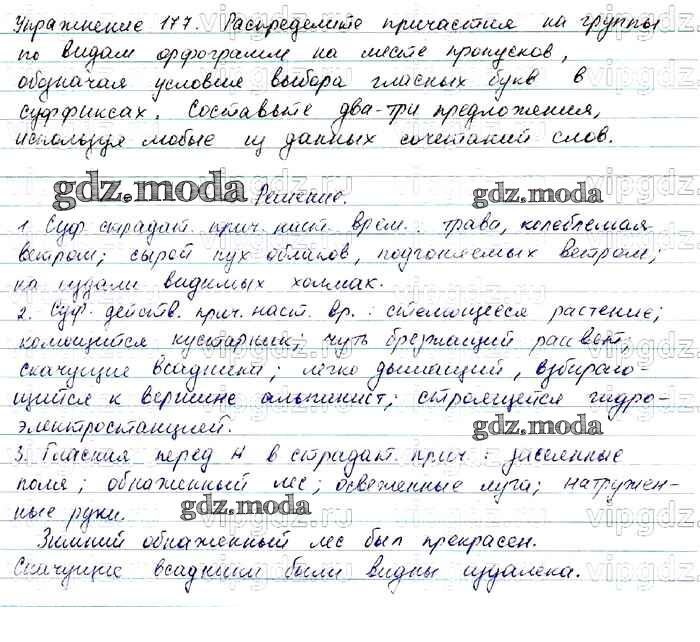 Упражнение 177. Распределите причастия на группы
по видам орфограмм на месте пропусков,
обозначая условия выбора гласных букв в
суффиксах. Составьте два-три предложения,
используя любые из данных сочетаний слов.
gdz.moda Решение. gdz.moda
1. Суф страдат. прич. наст. врем. : трава, колеблемая
ветром; сырой пух облаков, подгоняемых ветром;
на издали видимых холмах.
2. Суф. действ. прич. наст. вр. : стелющееся растение;
колющийся кустарник; чуть брезжащий рассвет;
скачущие всадники; легко дышащий, взбираю-
щийся к вершине альпинист; строящейся гидро-
электростанцией. gdz.moda
3. Гласная перед Н в страдат. прич. : заселенные
поля; обнаженный лес; освеженные луга; натружен-
ные руки. gdz.moda
Зимний обнаженный лес был прекрасен.
Скачущие всадники были видны издалека.